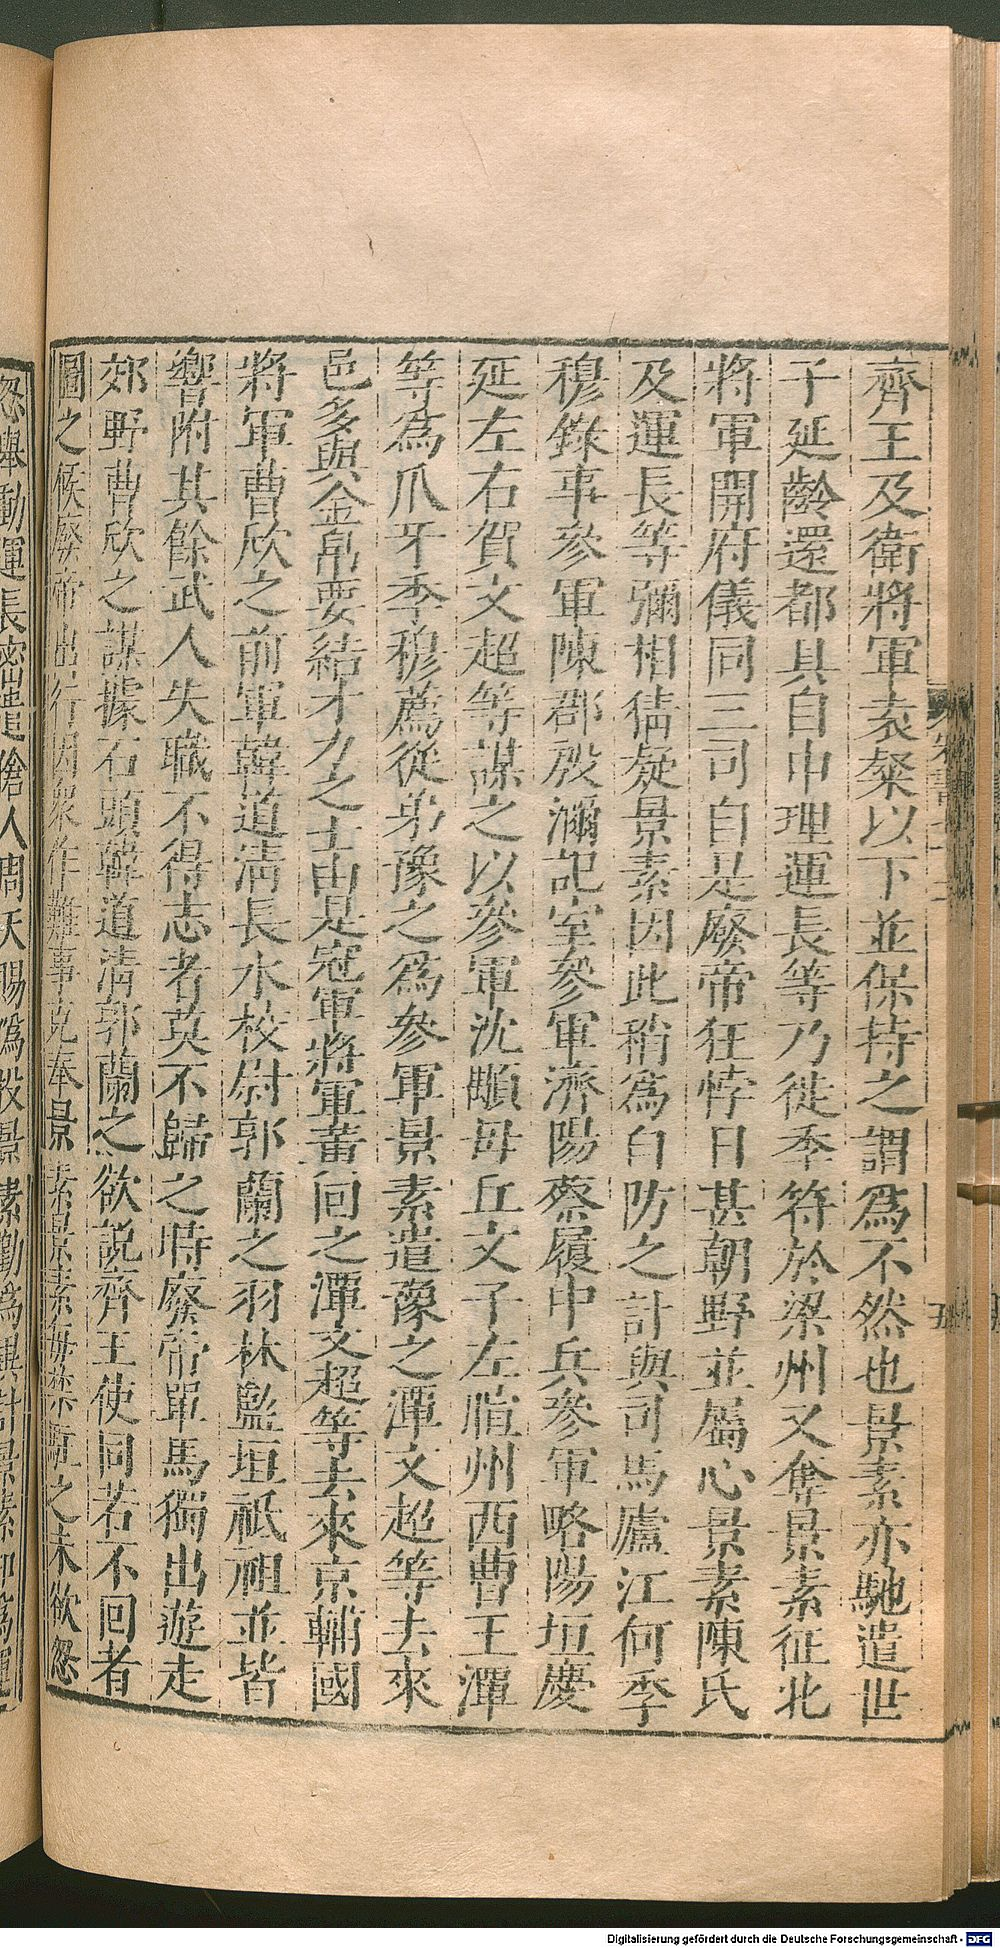 齊王及衛將軍袁粲以下並保持之謂爲不然也景素亦馳遣世
子延齡還都具自申理運長等乃徙季符於梁州又奪景素征北
將軍開府儀同三司自是廢帝狂悖日甚朝野並屬心景素陳氏
及運長等彌相猜疑景素因此稍爲自防之計與司馬廬江何季
穆錄事參軍陳郡殷濔記室參軍濟陽蔡履中兵參軍略陽垣慶
延左右賀文超等謀之以參軍沈顒毋丘文子左暄州西曹王潭
等爲爪牙季穆薦從弟豫之爲參軍景素遣豫之潭文超等去來
邑多與金帛要結才力之士由是冠軍將軍黃回之潭文超等去來京輔國
將軍曹欣之前軍韓道清長水校尉郭蘭之羽林監垣祗祖並皆
響附其餘武人失職不得志者莫不歸之時廢帝單馬獨出遊走
郊野曹欣之謀據石頭韓道清郭蘭之欲説齊王使同若不回者
圖之候廢帝出行因衆作難事克奉景素景素每禁駐之未欲怱
怱舉動運長密遣傖人周天賜僞投景素勸爲異計景素卽爲運
五
Digitalisierung gefördert durch die Deutsche Forschungsgemeinschaft - DFG